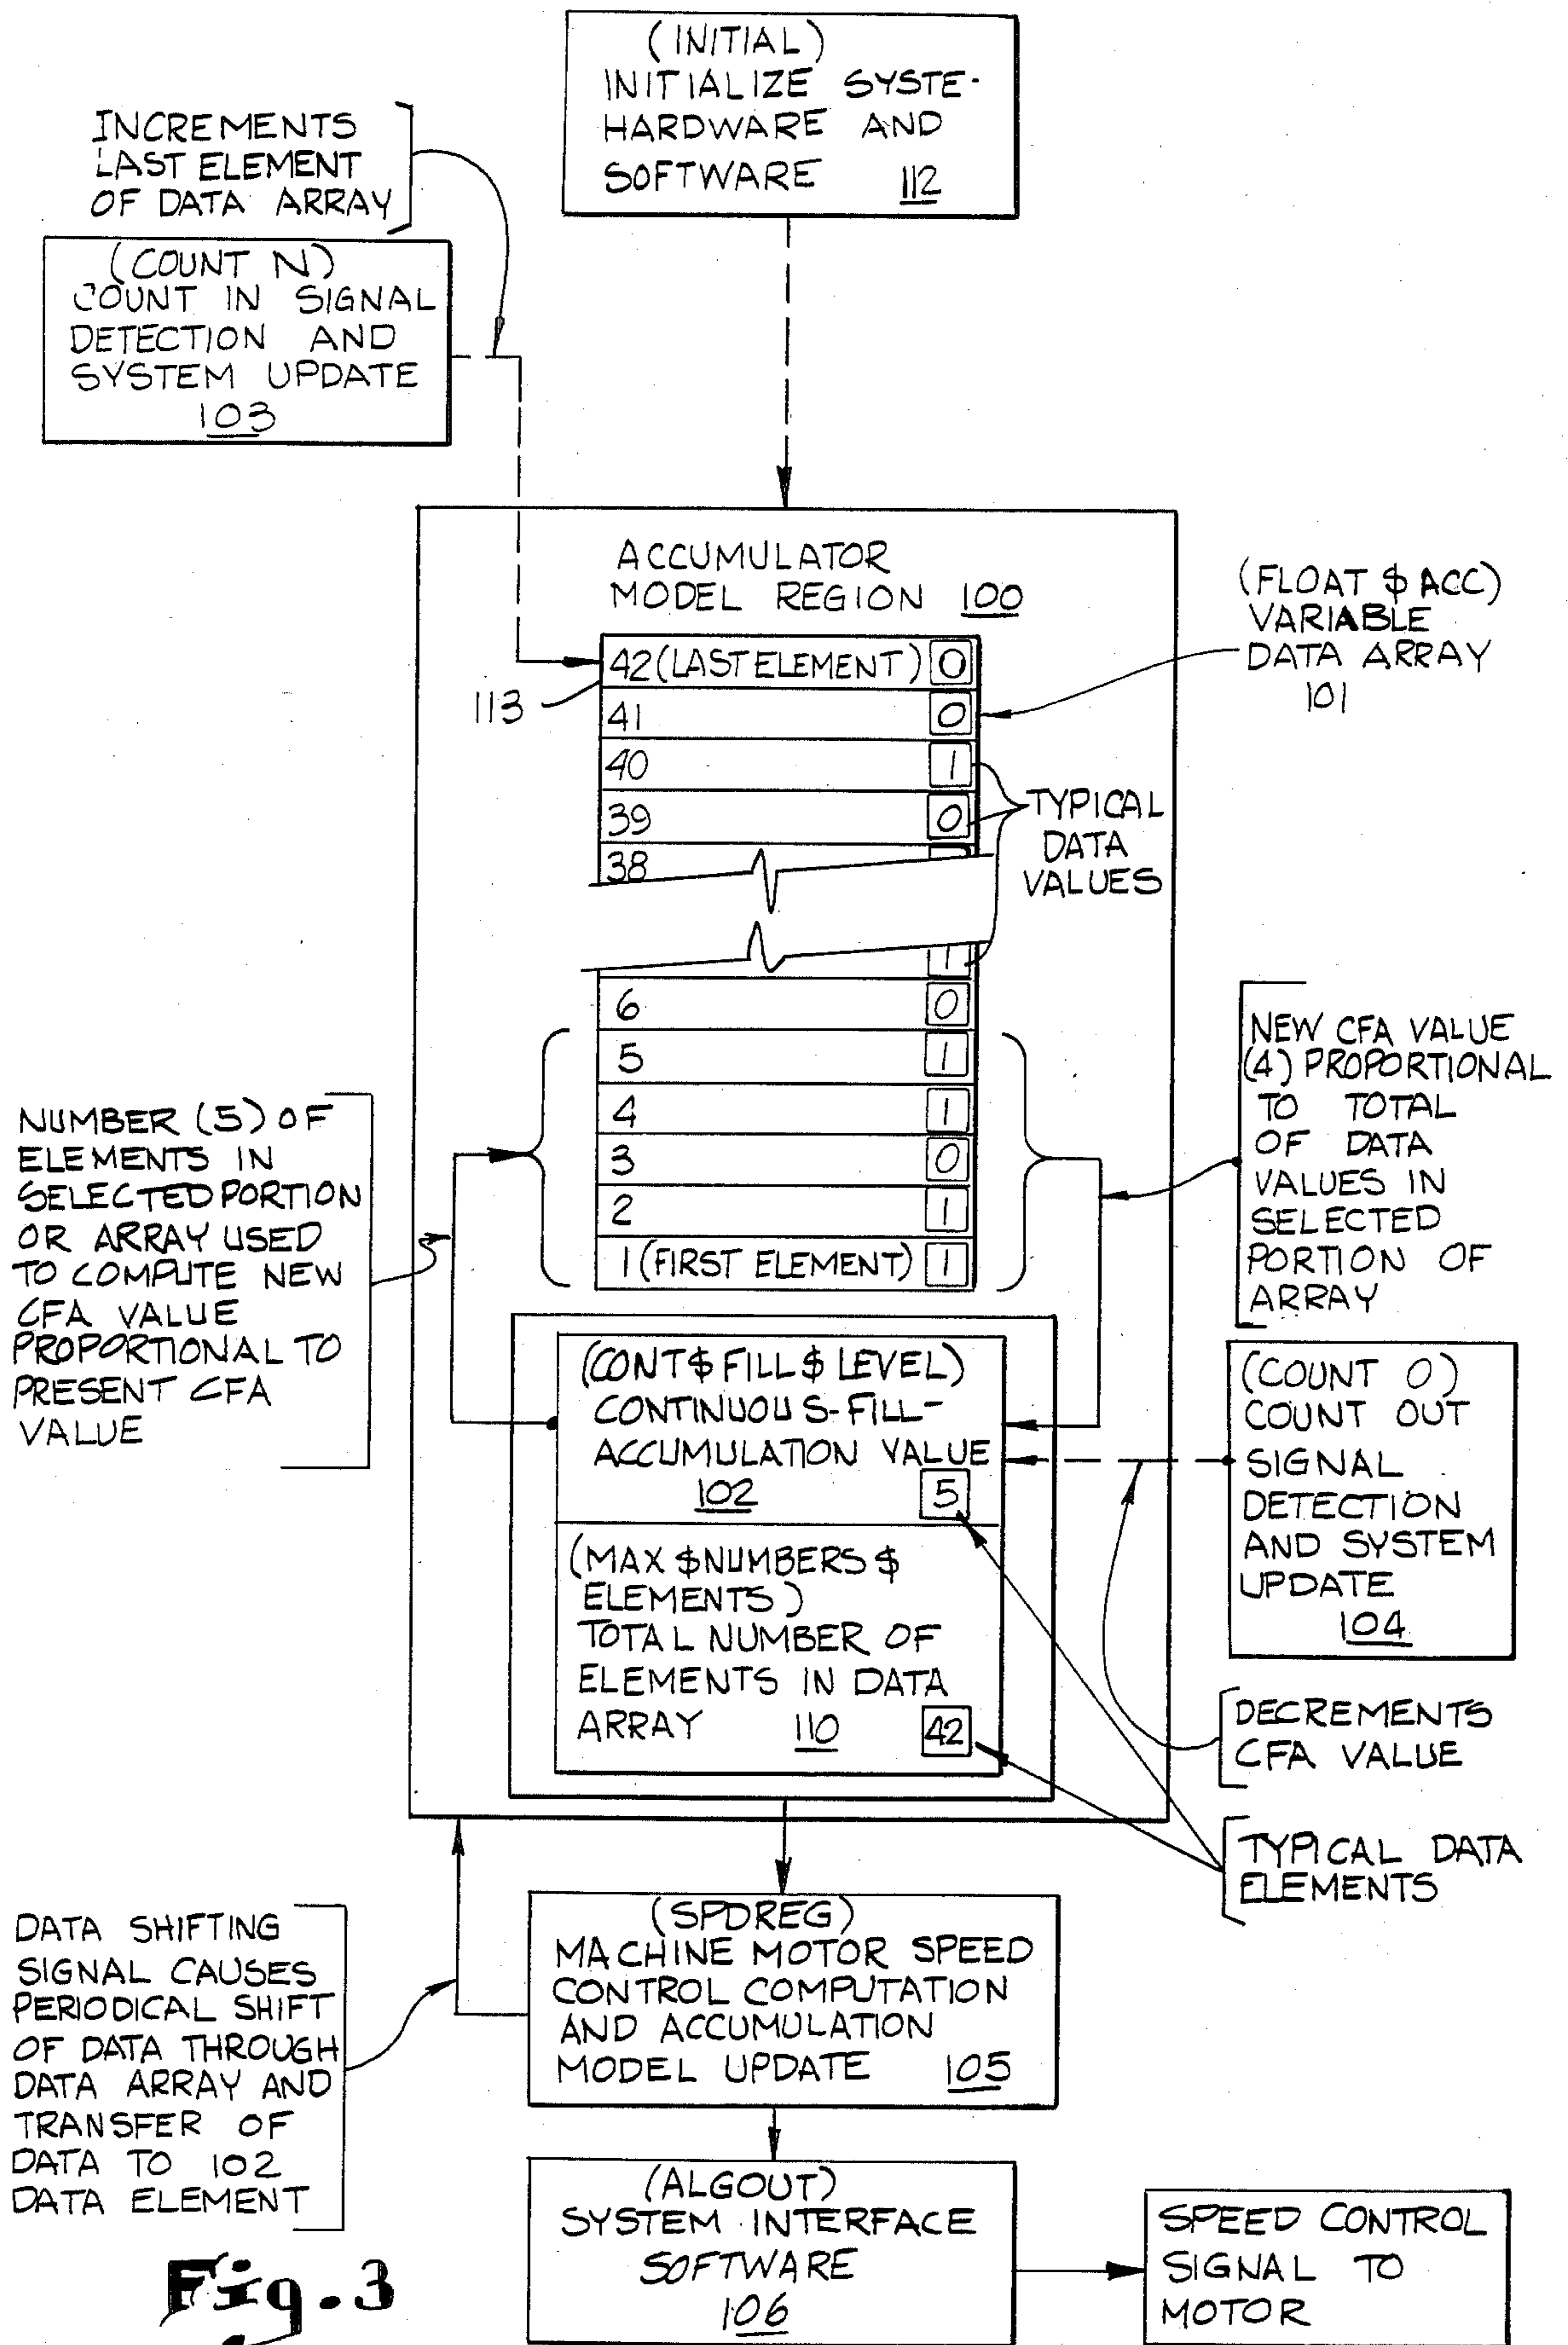 (INITIAL)
INITIALIZE SYSTE-
HARDWARE AND
SOFTWARE 112
INCREMENTS
LAST ELEMENT
OF DATA ARRAY
(COUNT N)
COUNT IN SIGNAL
DETECTION AND
SYSTEM UPDATE
103
ACCUMULATOR
MODEL REGION 100
(FLOAT $ ACC)
VARIABLE
DATA ARRAY
101
113
42 (LAST ELEMENT) 0
41 0
40 1
39 0
38
TYPICAL
DATA
VALUES
1
6 0
5 1
4 1
3 0
2 1
1 (FIRST ELEMENT) 1
NUMBER (5) OF
ELEMENTS IN
SELECTED PORTION
OR ARRAY USED
TO COMPUTE NEW
CFA VALUE
PROPORTIONAL TO
PRESENT CFA
VALUE
NEW CFA VALUE
(4) PROPORTIONAL
TO TOTAL
OF DATA
VALUES IN
SELECTED
PORTION OF
ARRAY
(CONT $ FILL $ LEVEL)
CONTINUOUS-FILL-
ACCUMULATION VALUE
102 5
(MAX $NUMBERS $
ELEMENTS)
TOTAL NUMBER OF
ELEMENTS IN DATA
ARRAY 110 42
(COUNT O)
COUNT OUT
SIGNAL
DETECTION
AND SYSTEM
UPDATE
104
DECREMENTS
CFA VALUE
TYPICAL DATA
ELEMENTS
DATA SHIFTING
SIGNAL CAUSES
PERIODICAL SHIFT
OF DATA THROUGH
DATA ARRAY AND
TRANSFER OF
DATA TO 102
DATA ELEMENT
(SPDREG)
MACHINE MOTOR SPEED
CONTROL COMPUTATION
AND ACCUMULATION
MODEL UPDATE 105
(ALGOUT)
SYSTEM INTERFACE
SOFTWARE
106
SPEED CONTROL
SIGNAL TO
MOTOR
Fig.3